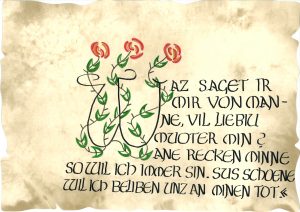 WAZ SAGET IR
MIR VON MAN-
NE, VIL LIEBIU
MUOTER MIN ?
ANE RECKEN MINNE
SO WIL ICH IMMER SIN. SUS SCHOENE
WIL ICH BELIBEN UNZ AN MINEN TOT